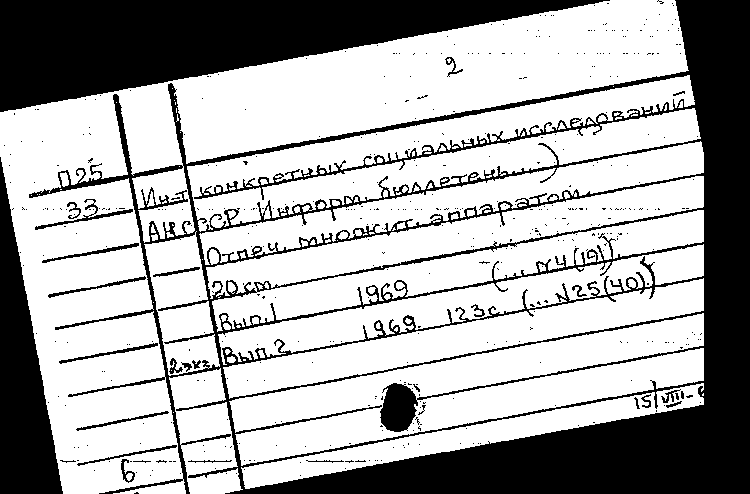 2
П25
33
Ин-т конкретных социальных исследований
АН СССР. Информ. бюллетень...)
Отпеч. множит. аппаратом.
20 см.
Вып.1 1969 (... N4(19)).
2 экз. Вып.2 1969. 123с. (... N25(40).)
15/VIII-6
6